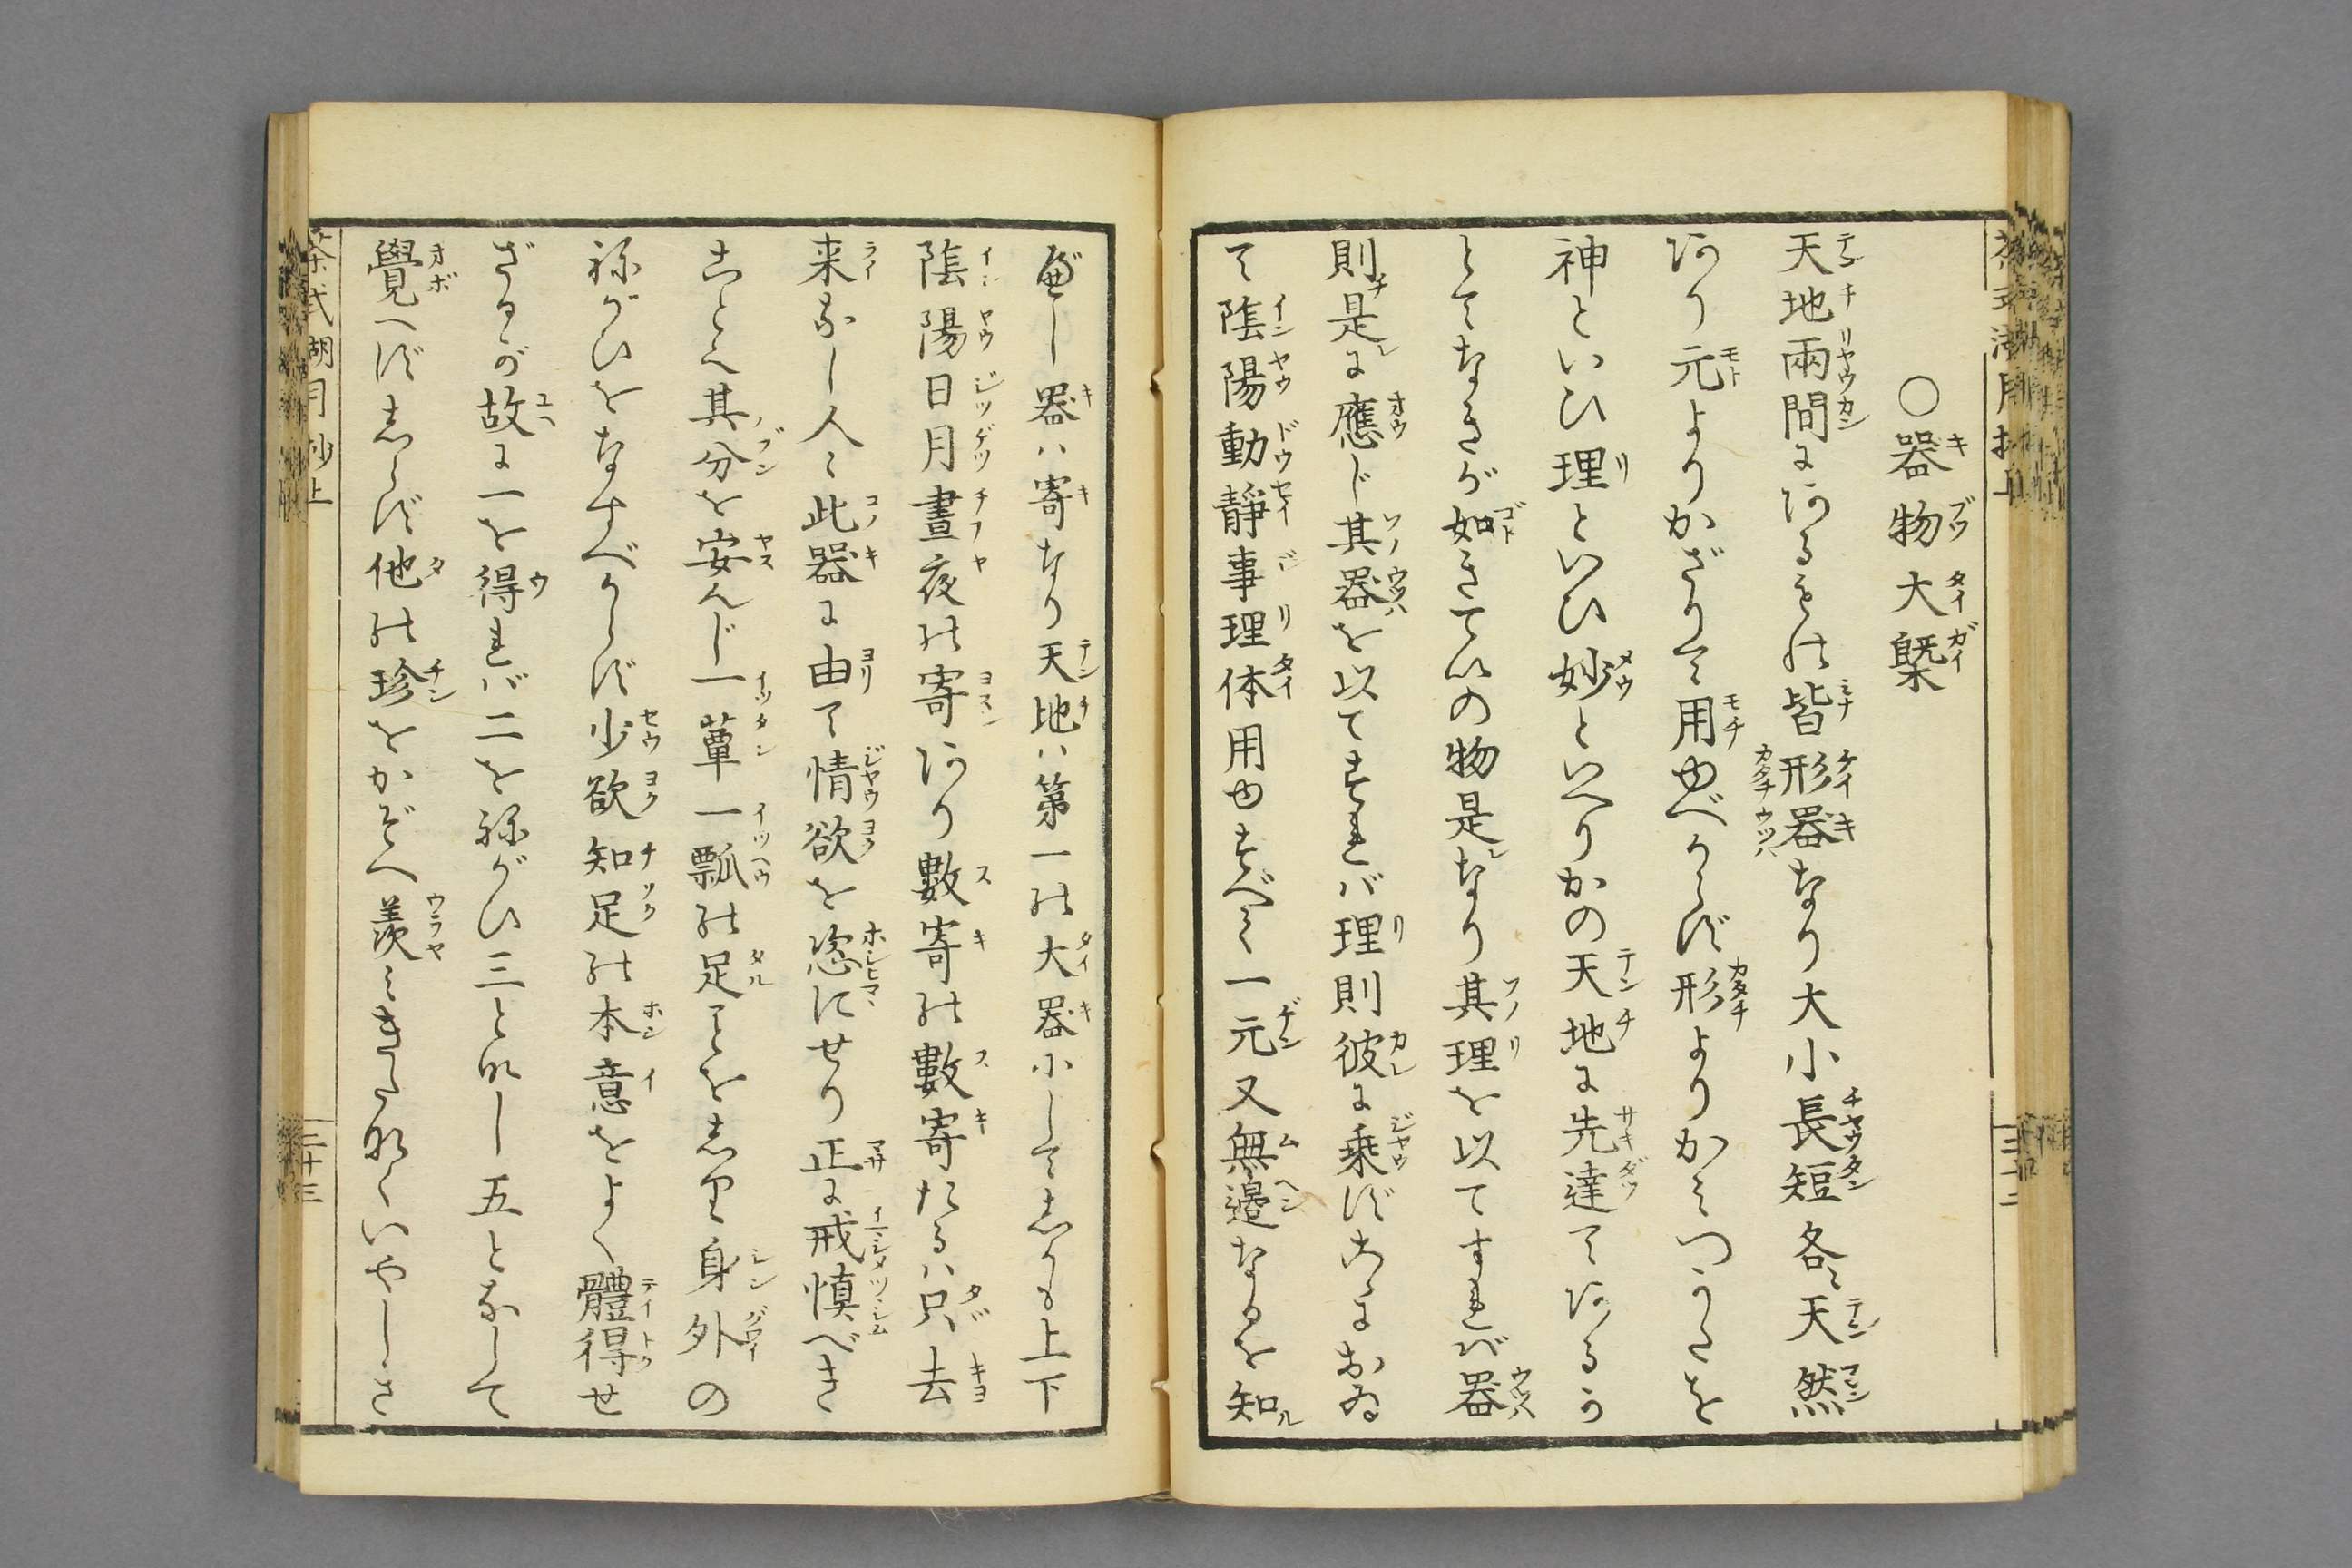 ○器物大槩
天地兩間にあるもの皆形器なり大小長短各〻天然
あり元よりかざりて用ゆべからず形よりかみつかたを
神といひ理といひ妙といへりかの天地に先達てあるか
とてなきが如きていの物是なり其理を以てすれば器
則是に應じ其器を以てすれば理則彼に乗ずこゝにおゐ
て陰陽動靜事理体用由すべて一元又無邊なるを知
べし器は寄なり天地は第一の大器小してしかも上下
陰陽日月晝夜の寄あり數寄の數寄たるは只去
来なし人〻此器に由て情欲を恣にせり正に戒慎べき
ことく其分を安んじ一簞一瓢の足ことをしり身外の
ねがひをなすべからず少欲知足の本意をよく體得せ
ざるが故に一を得れば二をねがひ三となし五となして
覺へずしらず他の珍をかぞへ羨みきたなくいやしき
茶式湖月抄上
三十二
茶式湖月抄上
三十三